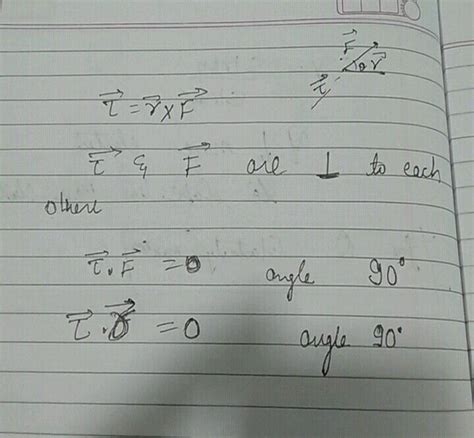 F⃗
θ r⃗
τ⃗
τ⃗ = r⃗ x F⃗
τ⃗ & F⃗ are ⊥ to each
other
τ⃗ . F⃗ = 0 angle 90°
τ⃗ . r⃗ = 0 angle 90°